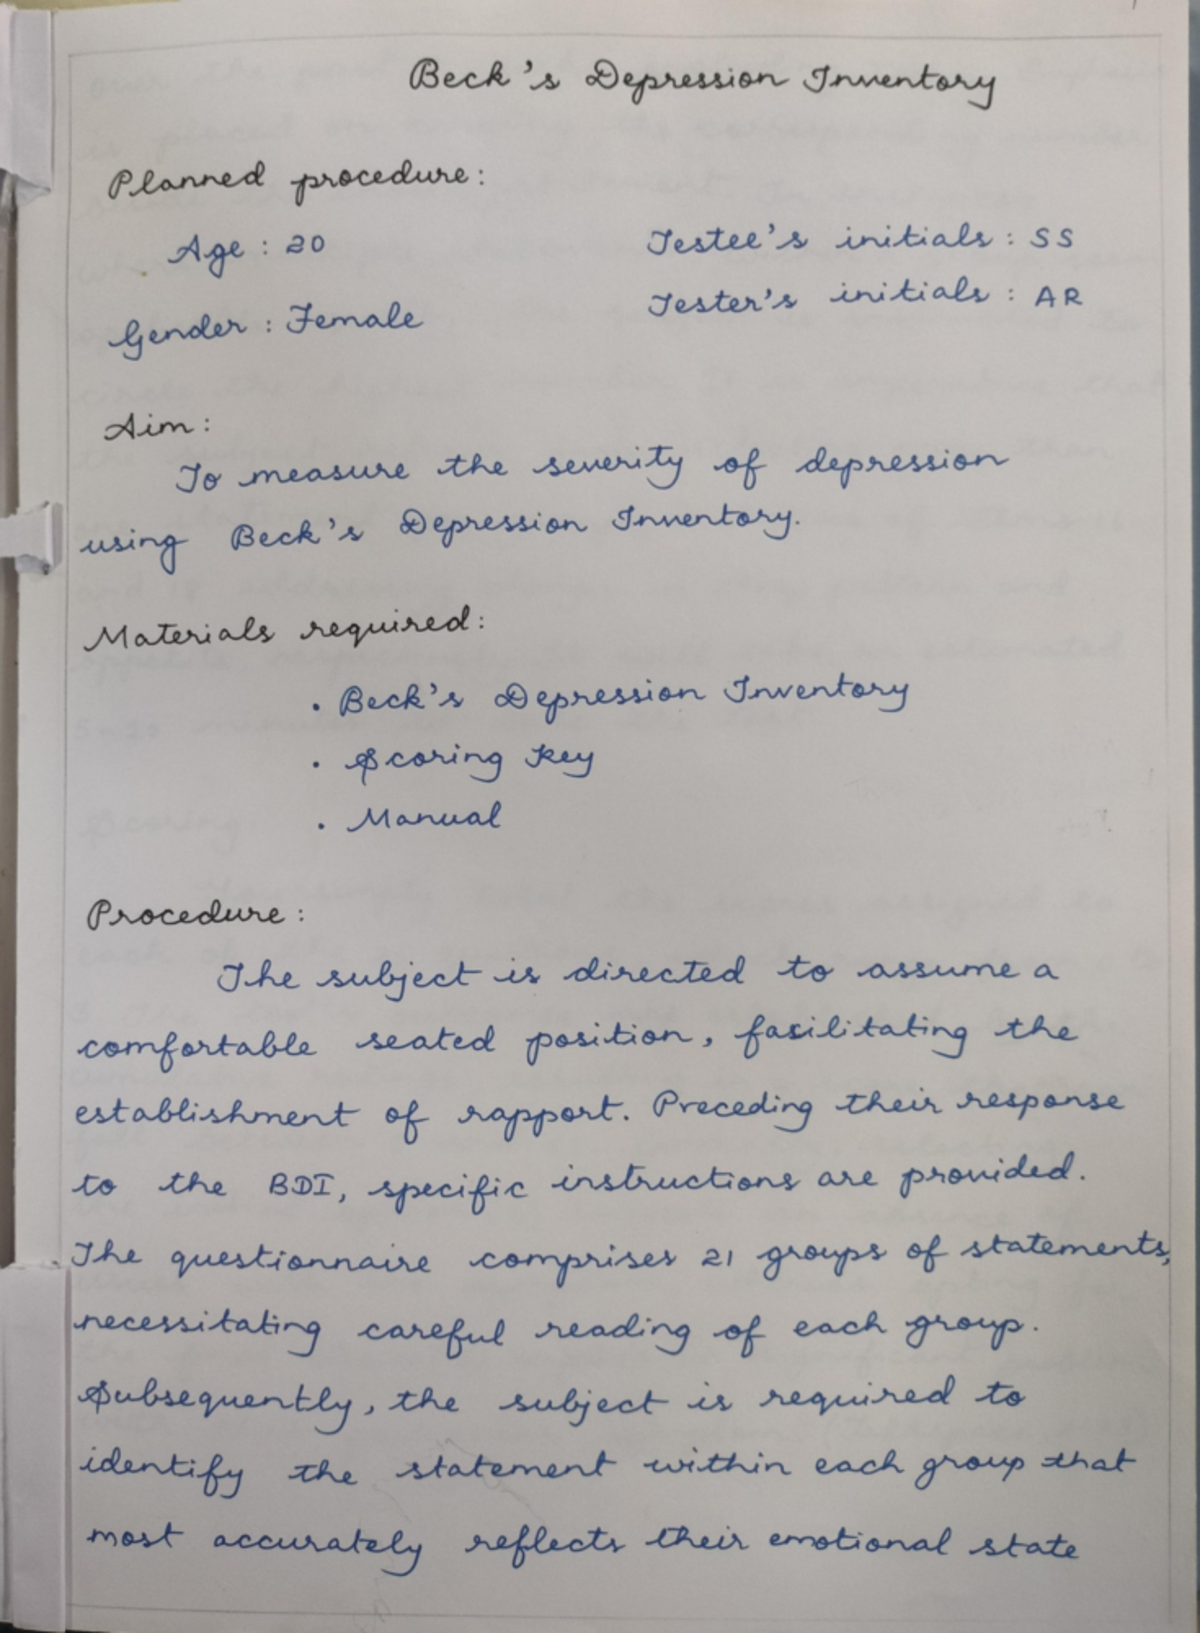 Beck's Depression Inventory
Planned procedure:
Age : 20
Testee's initials : SS
Gender : Female
Tester's initials : AR
Aim:
To measure the severity of depression
using Beck's Depression Inventory.
Materials required:
• Beck's Depression Inventory
• Scoring key
• Manual
Procedure:
The subject is directed to assume a
comfortable seated position, facilitating the
establishment of rapport. Preceding their response
to the BDI, specific instructions are provided.
The questionnaire comprises 21 groups of statements,
necessitating careful reading of each group.
Subsequently, the subject is required to
identify the statement within each group that
most accurately reflects their emotional state